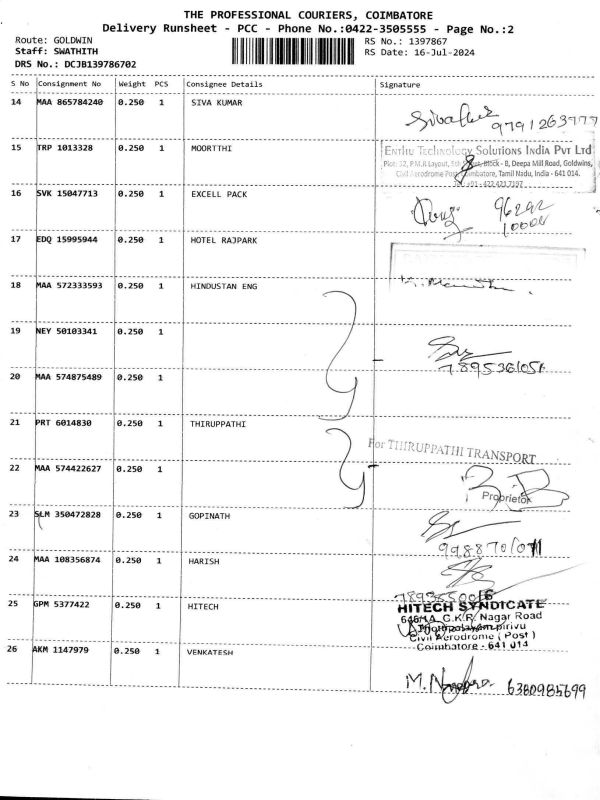 THE PROFESSIONAL COURIERS, COIMBATORE
Delivery Runsheet - PCC - Phone No.:0422-3505555 - Page No.:2
Route: GOLDWIN RS No.: 1397867
Staff: SWATHITH RS Date: 16-Jul-2024
DRS No.: DCJB139786702
S No Consignment No Weight PCS Consignee Details Signature
14 MAA 865784240 0.250 1 SIVA KUMAR
9791263777
15 TRP 1013328 0.250 1 MOORTTHI
Enthu Technology Solutions India Pvt Ltd
Plot: 32, P.M.R Layout, Block - B, Deepa Mill Road, Goldwins,
Civil Aerodrome Post, Coimbatore, Tamil Nadu, India - 641 014.
16 SVK 15047713 0.250 1 EXCELL PACK
17 EDQ 15995944 0.250 1 HOTEL RAJPARK
18 MAA 572333593 0.250 1 HINDUSTAN ENG
19 NEY 50103341 0.250 1
20 MAA 574875489 0.250 1
21 PRT 6014830 0.250 1 THIRUPPATHI
For THIRUPPATHI TRANSPORT
22 MAA 574422627 0.250 1
Proprietor
23 SLM 350472828 0.250 1 GOPINATH
24 MAA 108356874 0.250 1 HARISH
25 GPM 5377422 0.250 1 HITECH
HITECH SYNDICATE
G.K.R. Nagar Road
Civil Aerodrome (Post)
Coimbatore - 641 014
26 AKM 1147979 0.250 1 VENKATESH
6380985699